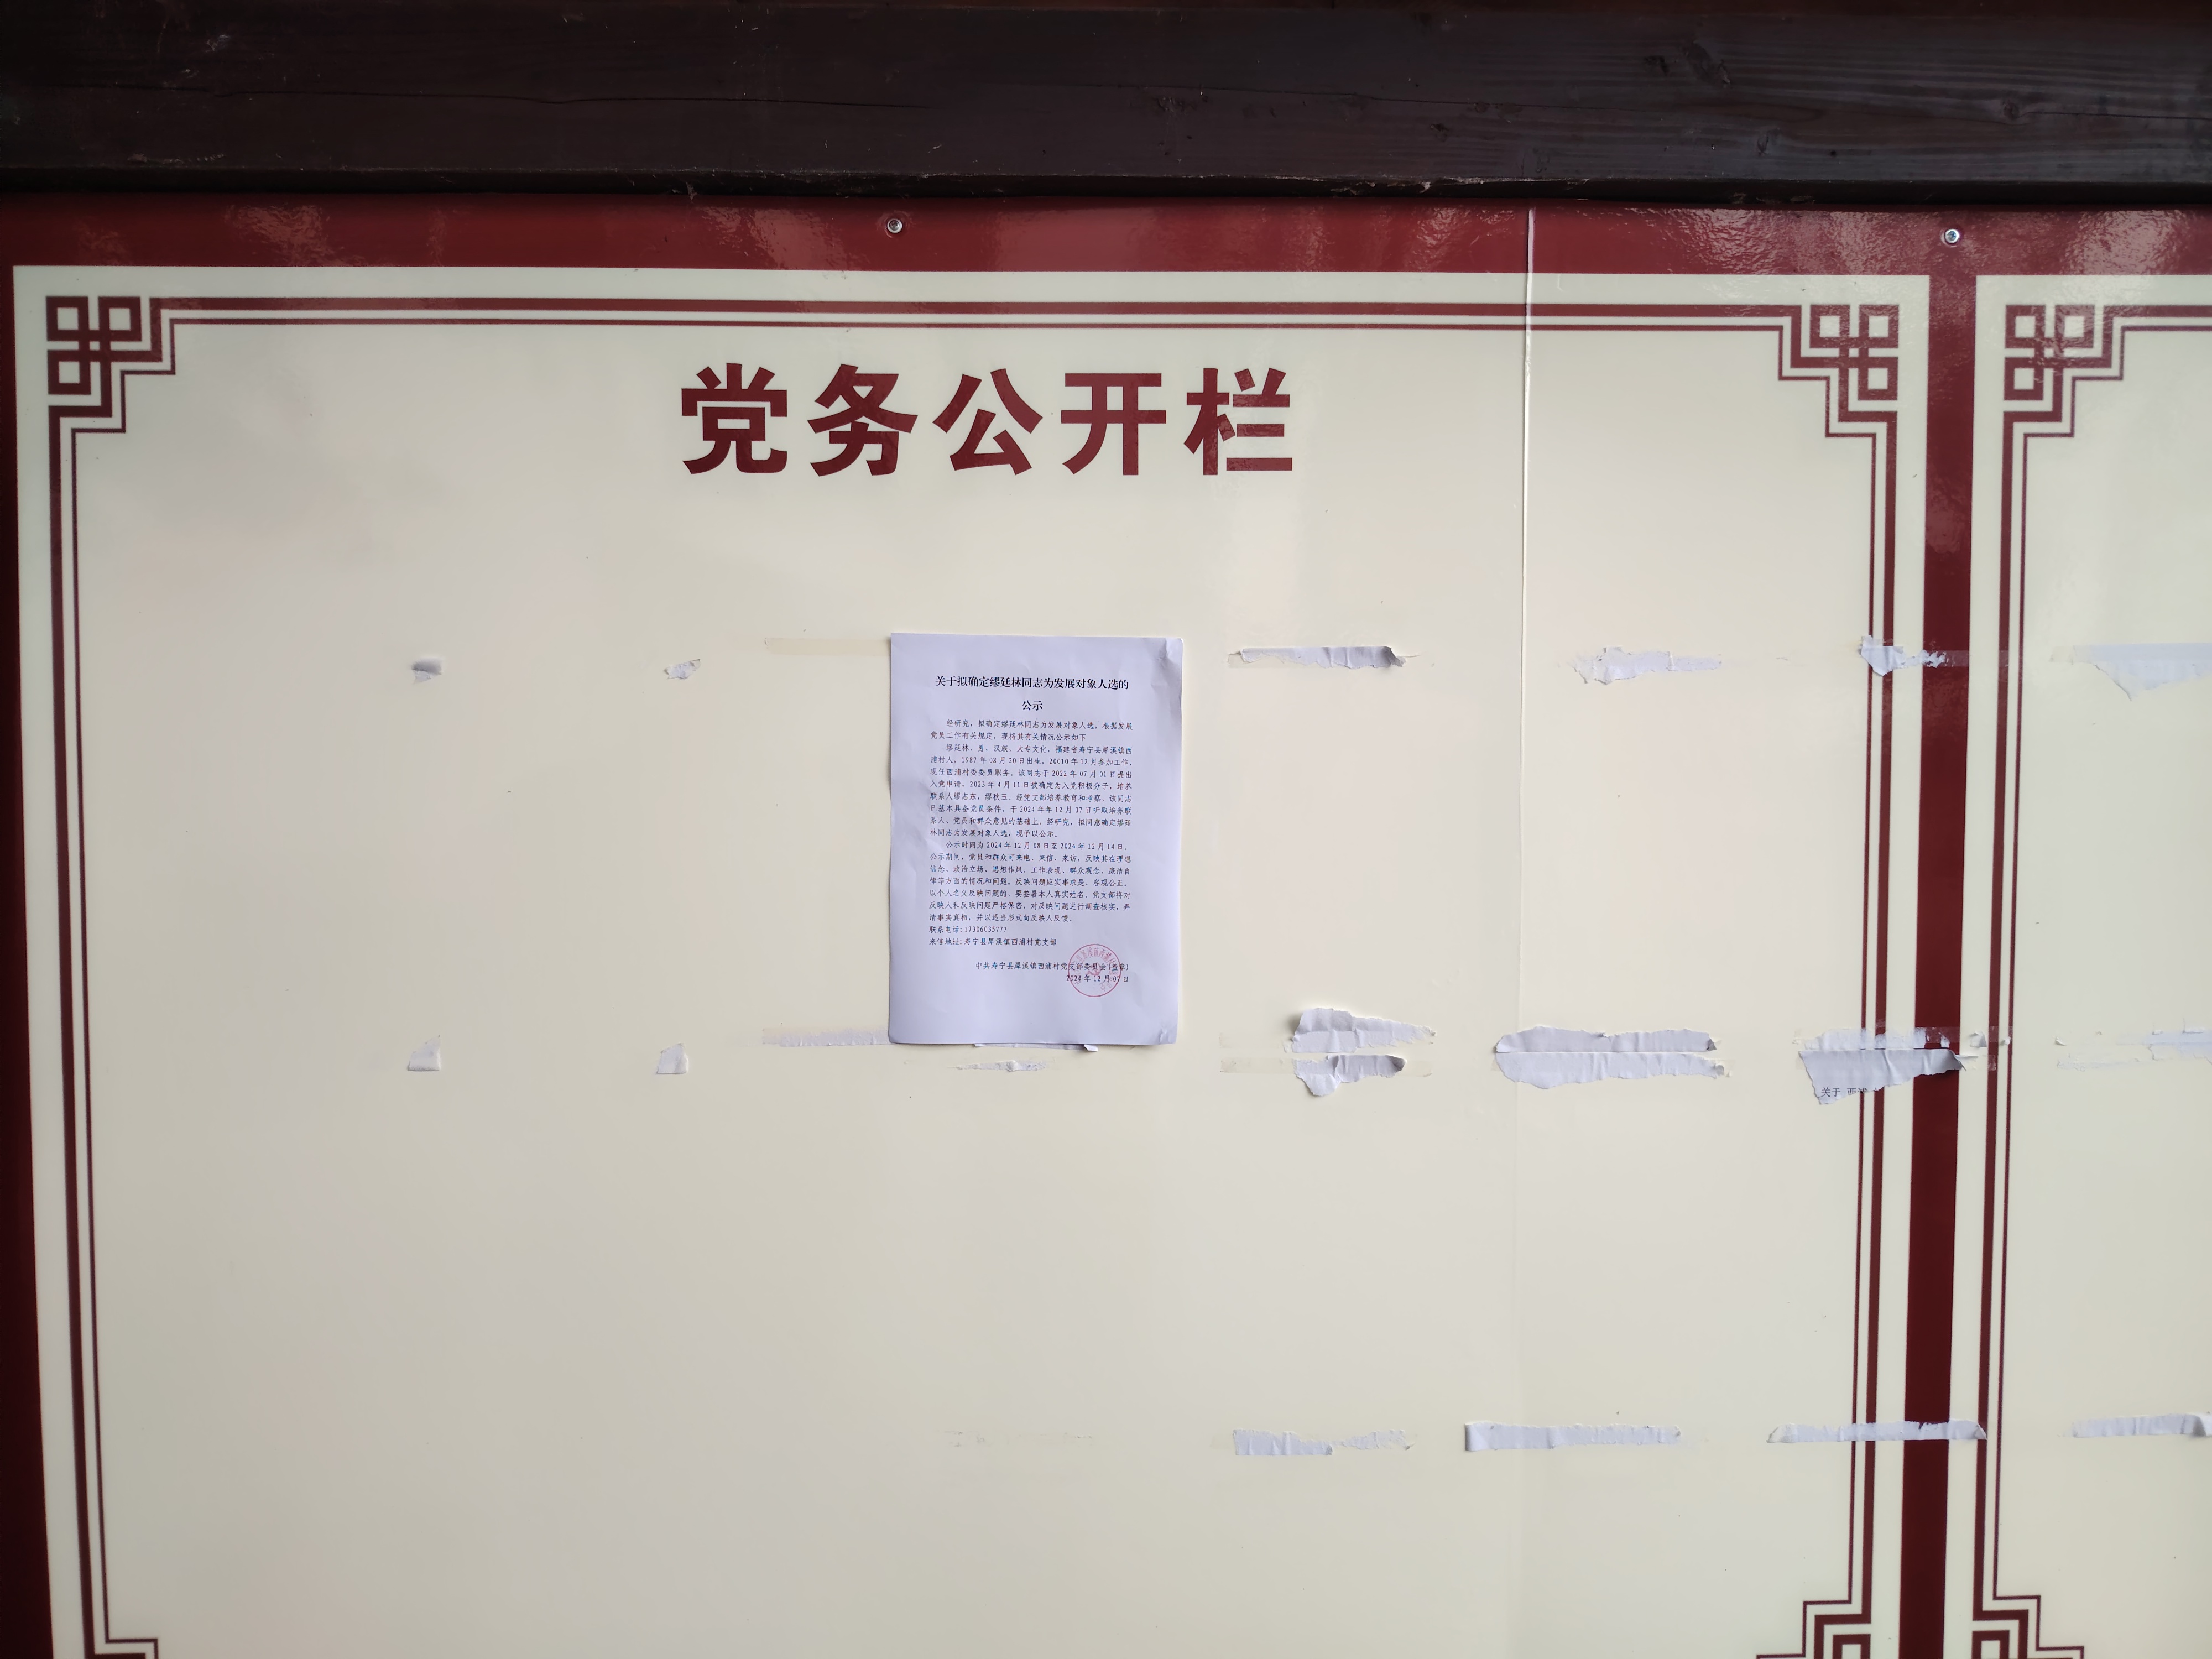 党务公开栏
关于拟确定缪廷林同志为发展对象人选的
公示
经研究，拟确定缪廷林同志为发展对象人选，根据发展
党员工作有关规定，现将其有关情况公示如下
缪廷林，男，汉族，大专文化，福建省寿宁县犀溪镇西
浦村人，1987年08月20日出生，20010年12月参加工作，
现任西浦村委委员职务。该同志于2022年07月01日提出
入党申请，2023年4月11日被确定为入党积极分子，培养
联系人缪志东，缪秋玉。经党支部培养教育和考察，该同志
已基本具备党员条件，于2024年年12月07日听取培养联
系人、党员和群众意见的基础上，经研究，拟同意确定缪廷
林同志为发展对象人选，现予以公示。
公示时间为2024年12月08日至2024年12月14日。
公示期间，党员和群众可来电、来信、来访，反映其在理想
信念、政治立场、思想作风、工作表现、群众观念、廉洁自
律等方面的情况和问题。反映问题应实事求是、客观公正。
以个人名义反映问题的，要签署本人真实姓名。党支部将对
反映人和反映问题严格保密，对反映问题进行调查核实，弄
清事实真相，并以适当形式向反映人反馈。
联系电话：17306035777
来信地址：寿宁县犀溪镇西浦村党支部
中共寿宁县犀溪镇西浦村党支部委员会（盖章）
2024年12月07日
关于